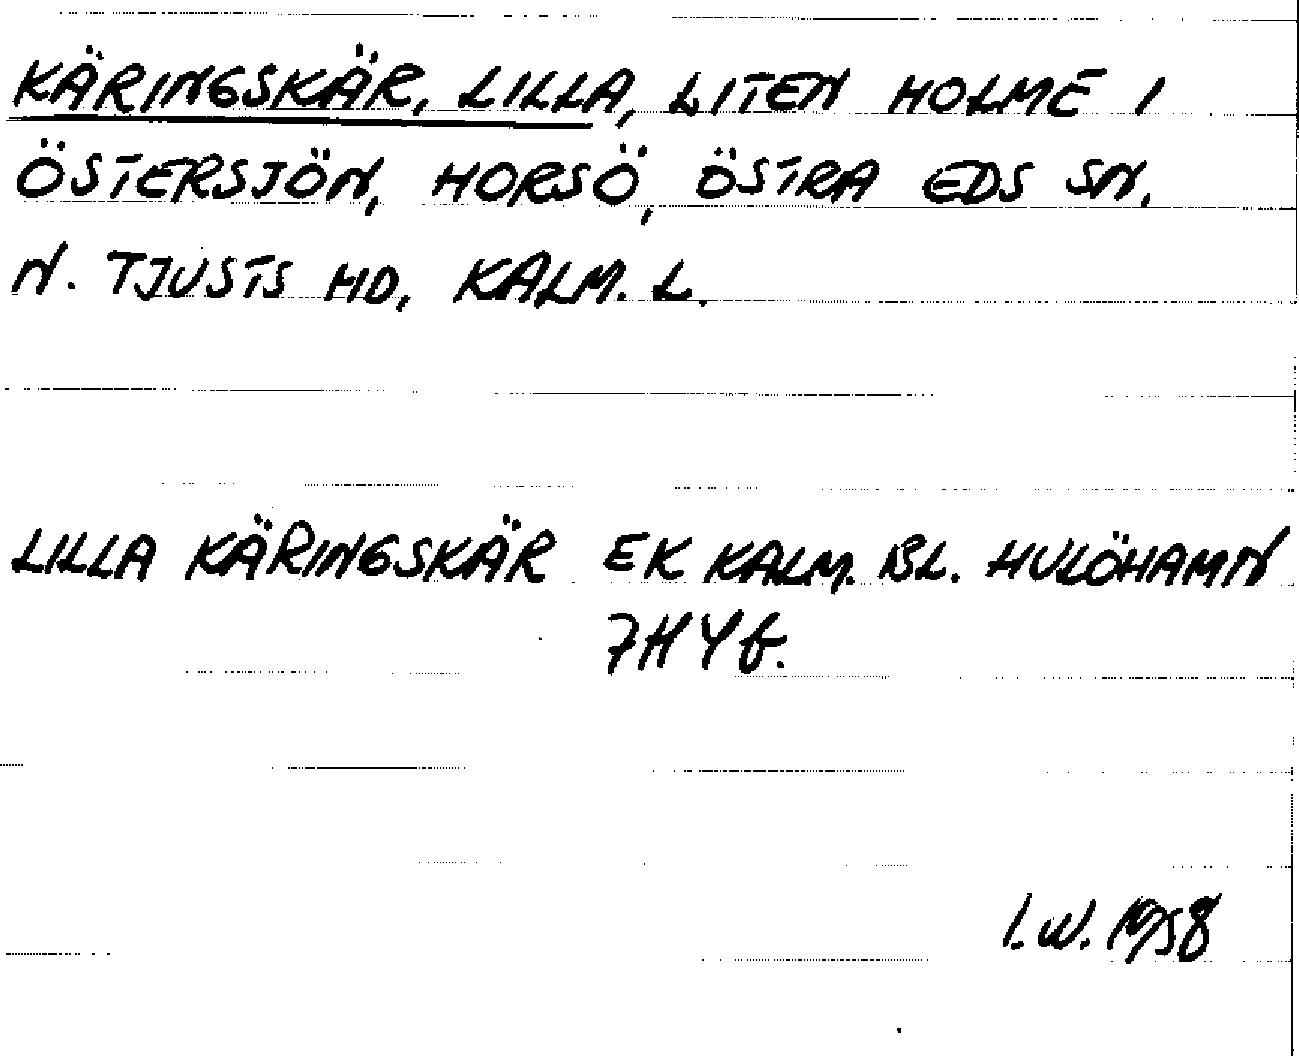 KÄRINGSKÄR, LILLA, LITEN HOLME I
ÖSTERSJÖN, HORSÖ, ÖSTRA EDS SN,
N. TJUSTS HD, KALM. L.
LILLA KÄRINGSKÄR EK KALM. BL. HULÖHAMN
7H4f.
I.W. 1958